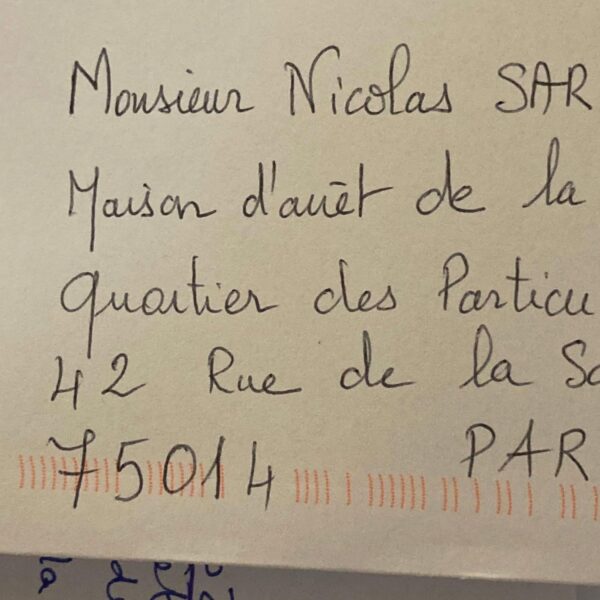 Monsieur Nicolas SAR
Maison d'arrêt de la
Quartier des Particu
42 Rue de la Sa
75014 PAR